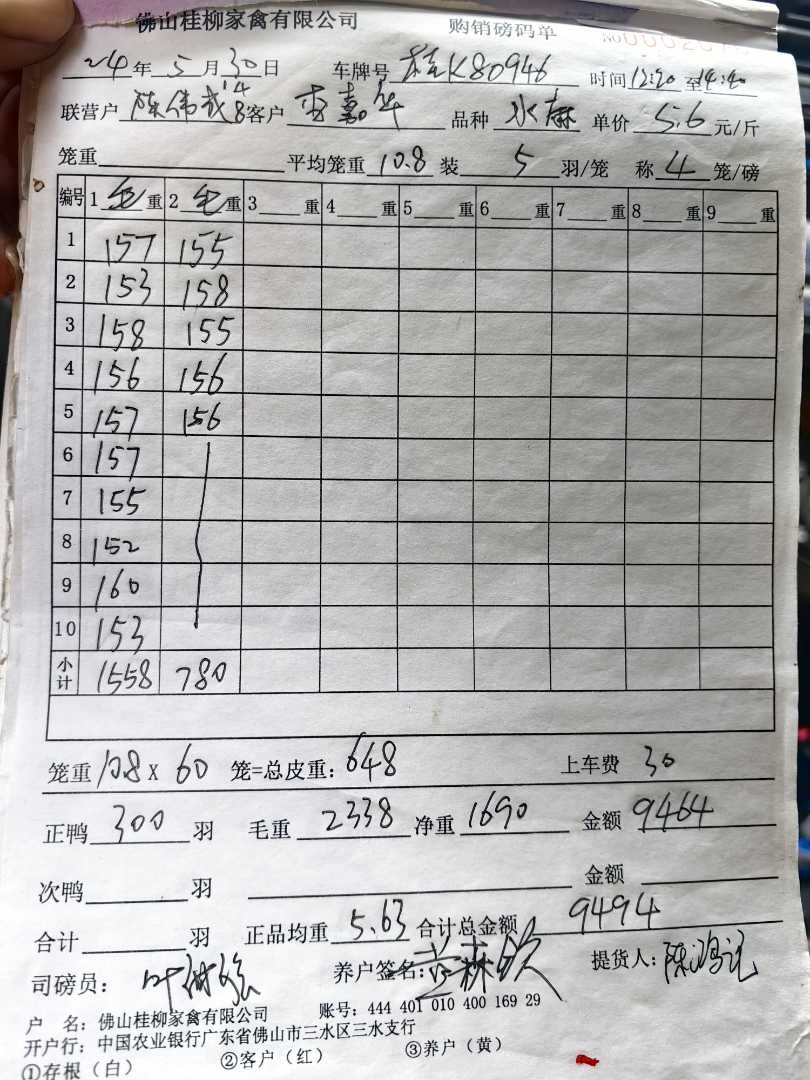 佛山桂柳家禽有限公司 购销磅码单 No
24年5月30日 车牌号 桂K80946 时间12:20至14:40
联营户 陈伟 客户 李嘉华 品种 水麻 单价 5.6 元/斤
笼重 平均笼重 10.8 装 5 羽/笼 称 4 笼/磅
编号 1 毛 重 2 毛 重 3 重 4 重 5 重 6 重 7 重 8 重 9 重
1 157 155
2 153 158
3 158 155
4 156 156
5 157 156
6 157
7 155
8 152
9 160
10 153
小计 1558 780
笼重 10.8 X 60 笼=总皮重: 648 上车费 30
正鸭 300 羽 毛重 2338 净重 1690 金额 9464
次鸭 羽 金额
合计 羽 正品均重 5.63 合计总金额 9494
司磅员: 叶 养户签名: 提货人: 陈鸿
户 名: 佛山桂柳家禽有限公司 账号: 444 401 010 400 169 29
开户行: 中国农业银行广东省佛山市三水区三水支行
①存根（白） ②客户（红） ③养户（黄）